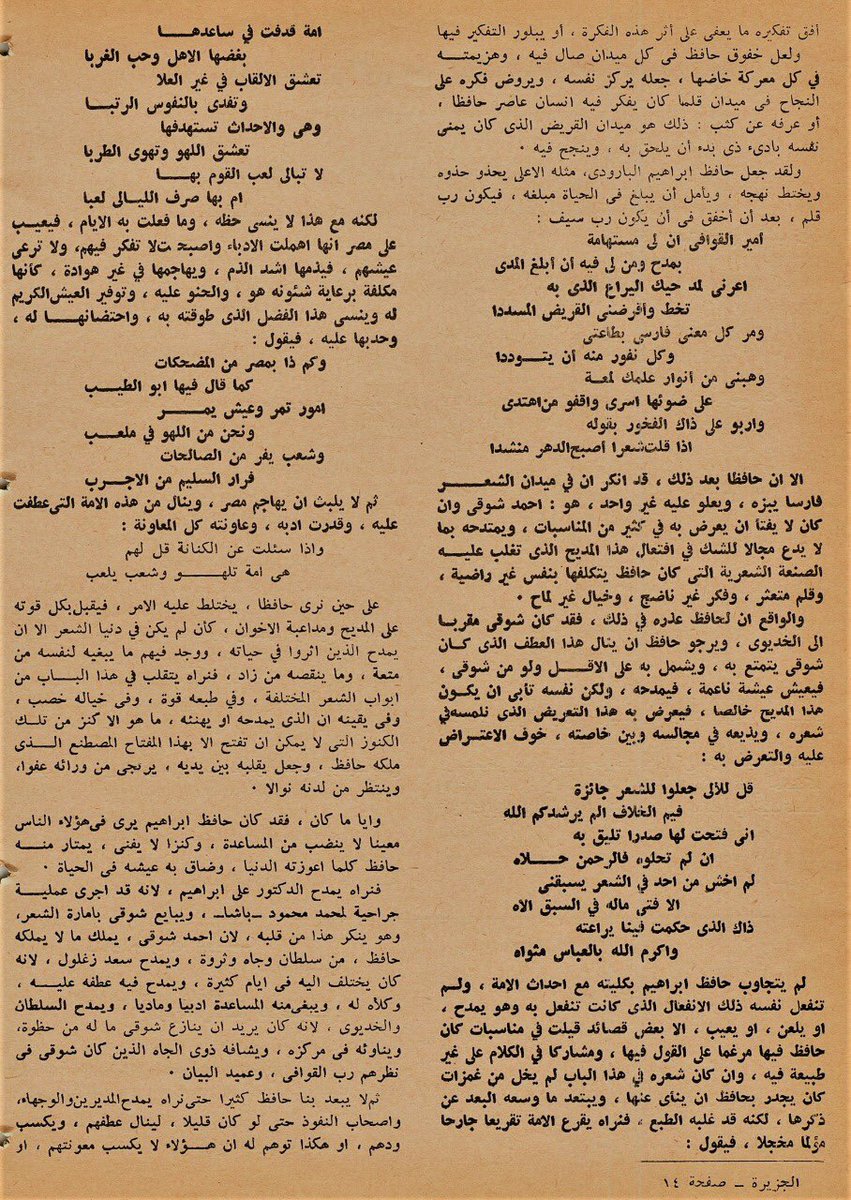 أفق تفكيره ما يعفى على أثر هذه الفكرة ، أو يبلور التفكير فيها
ولعل خفوق حافظ فى كل ميدان صال فيه ، وهزيمتـــه
في كل معركة خاضها ، جعله يركز نفسه ، ويروض فكره على
النجاح فى ميدان قلما كان يفكر فيه انسان عاصر حافظا ،
أو عرفه عن كثب : ذلك هو ميدان القريض الذى كان يمنى
نفسه بادىء ذى بدء أن يلحق به ، وينجح فيه ٠
ولقد جعل حافظ ابراهيم البارودى، مثله الاعلى يحذو حذوه
ويختط نهجه ، ويأمل أن يبلغ فى الحياة مبلغه ، فيكون رب
قلم ، بعد أن أخفق فى أن يكون رب سيف :
أمير القوافى ان لى مستهامة
بمدح ومن لى فيه أن أبلغ المدى
اعرنى لمدحيك اليراع الذى به
تخط وأقرضنى القريض المسددا
ومر كل معنى فارسى بطاعتى
وكل نفور منه أن يتـــوددا
وهبنى من أنوار علمك لمعـة
على ضوئها اسرى واقفو من اهتدى
واربو على ذاك الفخور بقوله
اذا قلت شعرا أصبح الدهر منشدا
الا ان حافظا بعد ذلك ، قد انكر ان في ميدان الشعــر
فارسا يبزه ، ويعلو عليه غير واحد ، هو : احمد شوقى وان
كان لا يفتأ ان يعرض به في كثير من المناسبات ، ويمتدحه بما
لا يدع مجالا للشك في افتعال هذا المديح الذى تغلب عليــه
الصنعة الشعرية التى كان حافظ يتكلفها بنفس غير راضية ،
وقلم متعثر ، وفكر غير ناضج ، وخيال غير لماح ٠
والواقع ان لحافظ عذره في ذلك ، فقد كان شوقى مقربـا
الى الخديوى ، ويرجو حافظ ان ينال هذا العطف الذى كــان
شوقى يتمتع به ، ويشمل به على الاقــل ولو من شوقى ،
فيعيش عيشة ناعمة ، فيمدحه ، ولكن نفسه تأبى ان يكـون
هذا المديح خالصا ، فيعرض به هذا التعريض الذى نلمسه في
شعره ، ويذيعه في مجالسه وبين خاصته ، خوف الاعتــراض
عليه والتعرض به :
قل للألى جعلوا للشعر جائزة
فيم الخلاف الم يرشدكم الله
انى فتحت لها صدرا تليق به
ان لم تحلوه فالرحمن حــلاه
لم اخش من احد في الشعر يسبقنى
الا فتى ماله في السبق الاه
ذاك الذى حكمت فينا يراعته
واكرم الله بالعباس مثواه
لم يتجاوب حافظ ابراهيم بكليته مع احداث الامة ، ولــم
تنفعل نفسه ذلك الانفعال الذى كانت تنفعل به وهو يمدح ،
او يلعن ، او يعيب ، الا بعض قصائد قيلت في مناسبات كان
حافظ فيها مرغما على القول فيها ، ومشاركا في الكلام على غير
طبيعة فيه ، وان كان شعره في هذا الباب لم يخل من غمزات
كان يجدر بحافظ ان ينأى عنها ، ويبتعد ما وسعه البعد عن
ذكرها ، لكنه قد غلبه الطبع ، فنراه يقرع الامة تقريعا جارحا
مؤلما مخجلا ، فيقول :
امة قدفت في ساعدهـــا
بغضها الاهل وحب الغربا
تعشق الالقاب في غير العلا
وتفدى بالنفوس الرتبـــا
وهى والاحداث تستهدفها
تعشق اللهو وتهوى الطربا
لا تبالى لعب القوم بهـــا
ام بها صرف الليـالى لعبا
لكنه مع هذا لا ينسى حظه ، وما فعلت به الايام ، فيعيـب
على مصر انها اهملت الادباء واصبحت لا تفكر فيهم، ولا ترعى
عيشهم ، فيذمها اشد الذم ، ويهاجمها في غير هوادة ، كأنها
مكلفة برعاية شئونه هو ، والحنو عليه ، وتوفير العيش الكريم
له وينسى هذا الفضل الذى طوقته به ، واحتضانهـــا له ،
وحدبها عليه ، فيقول :
وكم ذا بمصر من المضحكات
كما قال فيها ابو الطيــب
امور تمر وعيش يمـــر
ونحن من اللهو في ملعــب
وشعب يفر من الصالحات
فرار السليم من الاجـرب
ثم لا يلبث ان يهاجم مصر ، وينال من هذه الامة التى عطفت
عليه ، وقدرت ادبه ، وعاونته كل المعاونة :
واذا سئلت عن الكنانة قل لهم
هى امة تلهـــو وشعب يلعب
على حين نرى حافظا ، يختلط عليه الامر ، فيقبل بكل قوته
على المديح ومداعبة الاخوان ، كأن لم يكن في دنيا الشعر الا ان
يمدح الذين اثروا في حياته ، ووجد فيهم ما يبغيه لنفسه من
متعة ، وما ينقصه من زاد ، فنراه يتقلب في هذا البـاب من
ابواب الشعر المختلفة ، وفي طبعه قوة ، وفى خياله خصب ،
وفى يقينه ان الذى يمدحه او يهنئه ، ما هو الا كنز من تلــك
الكنوز التى لا يمكن ان تفتح الا بهذا المفتاح المصطنع الــذى
ملكه حافظ ، وجعل يقلبه بين يديه ، يرتجى من ورائه عفوا،
وينتظر من لدنه نوالا ٠
وايا ما كان ، فقد كان حافظ ابراهيم يرى فى هؤلاء الناس
معينا لا ينضب من المساعدة ، وكنزا لا يفنى ، يمتار منـــه
حافظ كلما اعوزته الدنيا ، وضاق به عيشه فى الحياة ٠
فنراه يمدح الدكتور على ابراهيم ، لانه قد اجرى عمليـة
جراحية لمحمد محمود ـ باشا ـ ، ويبايع شوقى بامارة الشعر،
وهو ينكر هذا من قلبه ، لان احمد شوقى ، يملك ما لا يملكه
حافظ ، من سلطان وجاه وثروة ، ويمدح سعد زغلول ، لانه
كان يختلف اليه فى ايام كثيرة ، ويمدح فيه عطفه عليــه ،
وكلأه له ، ويبغى منه المساعدة ادبيا وماديا ، ويمدح السلطان
والخديوى ، لانه كان يريد ان ينازع شوقى ما له من حظوة،
ويناوئه فى مركزه ، ويشافه ذوى الجاه الذين كان شوقى فى
نظرهم رب القوافى ، وعميد البيان ٠
ثم لا يبعد بنا حافظ كثيرا حتى نراه يمدح المديرين والوجهاء،
واصحاب النفوذ حتى لو كان قليلا ، لينال عطفهم ، ويكسب
ودهم ، او هكذا توهم له ان هــؤلاء لا يكسب معونتهم ، او
الجزيرة ـ صفحة ١٤